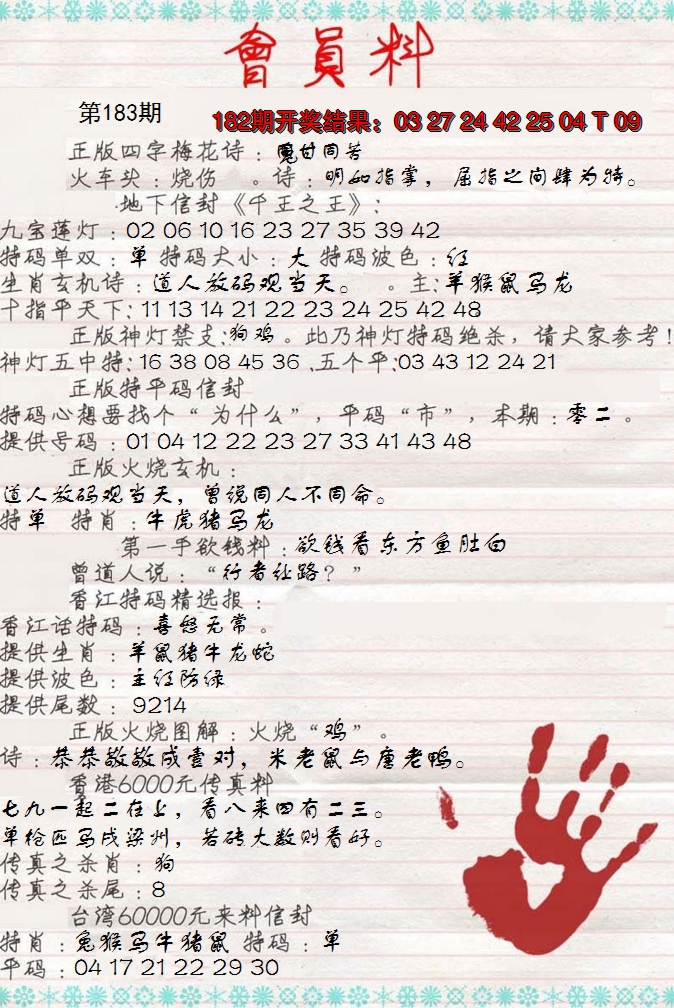 會員料
第183期
182期开奖结果：03 27 24 42 25 04 T 09
正版四字梅花诗：魇甘同苦
火车头：烧伤 。诗：明如指掌，屈指之间肆为特。
地下信封《千王之王》：
九宝莲灯：02 06 10 16 23 27 35 39 42
特码单双：单 特码大小：大 特码波色：红
生肖玄机诗：道人放码观当天。 。主：羊猴鼠马龙
十指平天下：11 13 14 21 22 23 24 25 42 48
正版神灯禁支：狗鸡。此乃神灯特码绝杀，请大家参考！
神灯五中特：16 38 08 45 36 .五个平：03 43 12 24 21
正版特平码信封
特码心想要找个“为什么”，平码“市”，本期：零二。
提供号码：01 04 12 22 23 27 33 41 43 48
正版火烧玄机：
道人放码观当天，曾说同人不同命。
特单 特肖：牛虎猪马龙
第一手欲钱料：欲钱看东方鱼肚白
曾道人说：“行者让路？”
香江特码精选报：
香江话特码：喜怒无常。
提供生肖：羊鼠猪牛龙蛇
提供波色：主红防绿
提供尾数：9214
正版火烧图解：火烧“鸡”。
诗：恭恭敬敬成壹对，米老鼠与唐老鸭。
香港6000元传真料
七九一起二在上，看八来四有二三。
单枪匹马戍梁州，若砖大数则看好。
传真之杀肖：狗
传真之杀尾：8
台湾60000元来料信封
特肖：兔猴马牛猪鼠 特码：单
平码：04 17 21 22 29 30